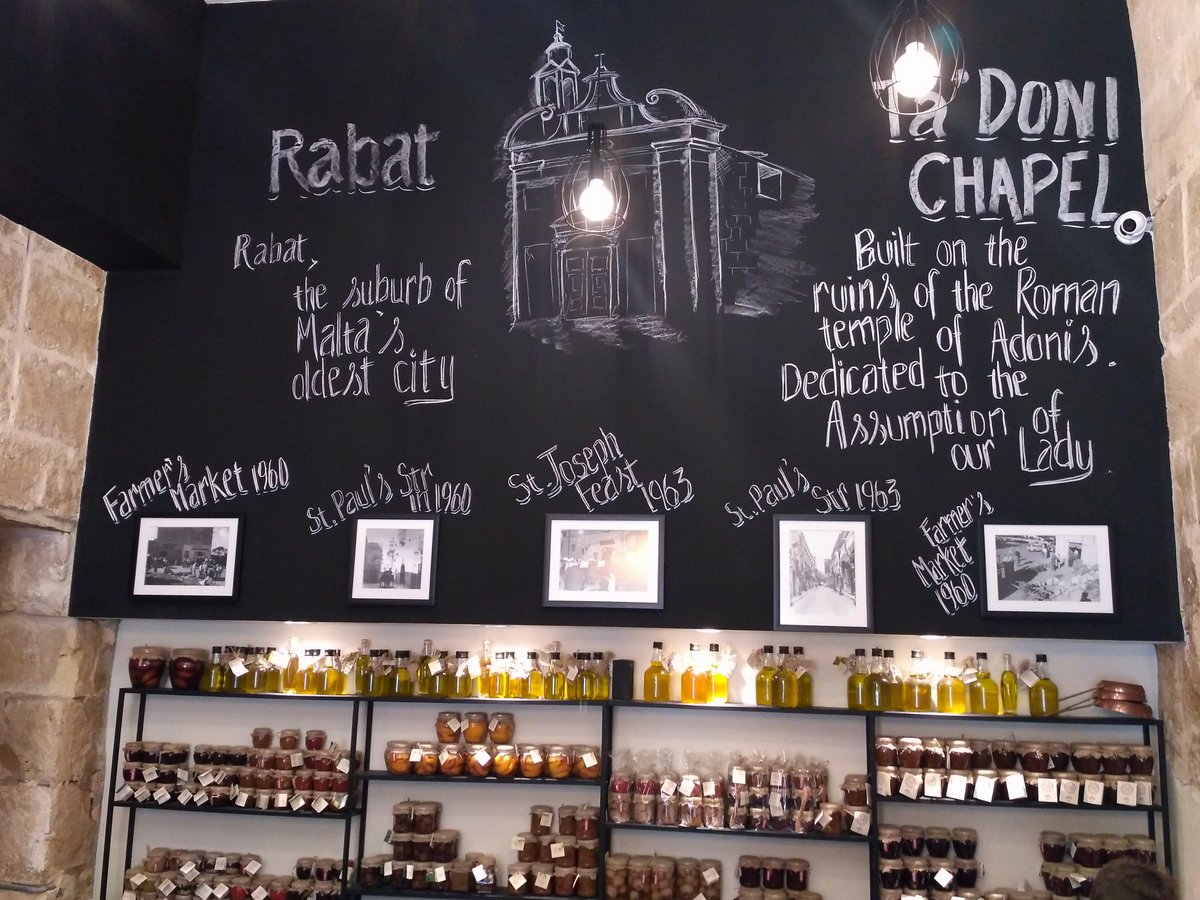 Rabat
Rabat,
the suburb of
Malta's
oldest city
Ta' DONI
CHAPEL
Built on the
ruins of the Roman
temple of Adonis.
Dedicated to the
Assumption of
our Lady.
Farmer's
Market 1960
St. Paul's Str
in 1960
St. Joseph
Feast
1963
St. Paul's
Str 1963
Farmer's
Market
1960